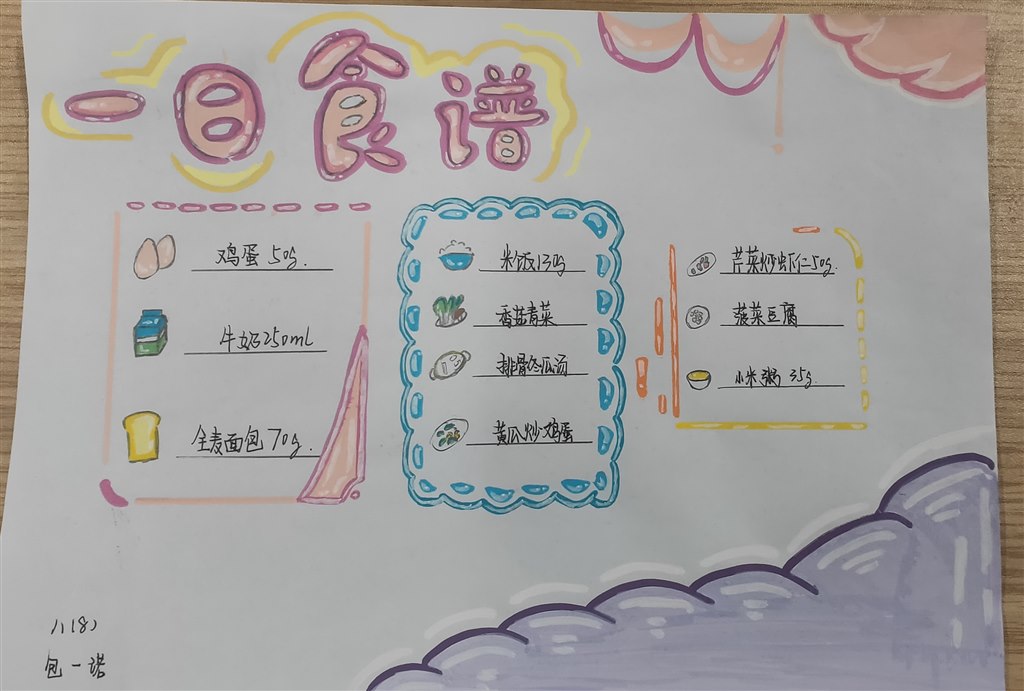 一日食谱
鸡蛋 50g.
牛奶250mL
全麦面包70g.
米饭130g
香菇青菜
排骨冬瓜汤
黄瓜炒鸡蛋
芹菜炒虾仁50g.
菠菜豆腐
小米粥 35g.
八(8)
包一诺